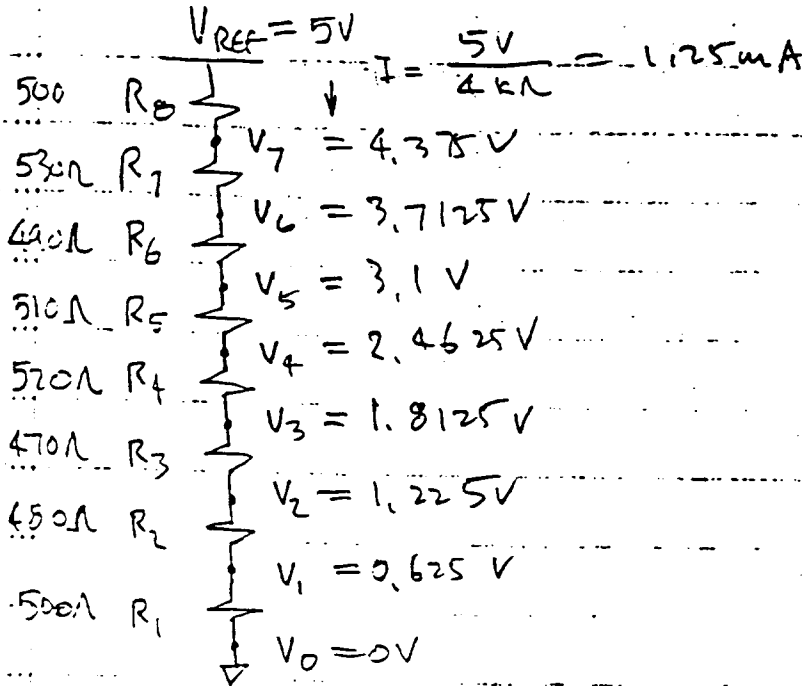 V_REF = 5V
I = 5V / 4 kΩ = 1.25 mA
500 R8
V7 = 4.375 V
530Ω R7
V6 = 3.7125 V
490Ω R6
V5 = 3.1 V
510Ω R5
V4 = 2.4625 V
520Ω R4
V3 = 1.8125 V
470Ω R3
V2 = 1.225 V
480Ω R2
V1 = 0.625 V
500Ω R1
V0 = 0V